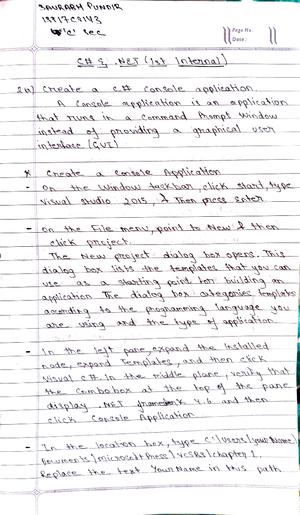 SAURABH PUNDIR
'C' sec
Page No.
Date :
C# & .NET (1st Internal)
2a) Create a c# console application.
A Console application is an application
that runs in a Command Prompt window
instead of providing a graphical user
interface (GUI)
* Create a Console Application
- On the Window taskbar, click start, type
Visual Studio 2015, & Then press Enter.
- On the File menu, point to New & then
click project.
The New project dialog box opens. This
dialog box lists the templates that you can
use as a starting point for building an
application The dialog box categories templates
according to the programming language you
are using and the type of application.
- In the left pane, expand the Installed
node, expand Templates, and then click
Visual C#. In the middle plane, verify that
the Combobox at the top of the pane
display .NET framework 4.6 and then
click Console Application
- In the location box, type C:\Users\YourName\
Documents\Microsoft Press\VCSBS\Chapter 1.
Replace the text YourName in this path